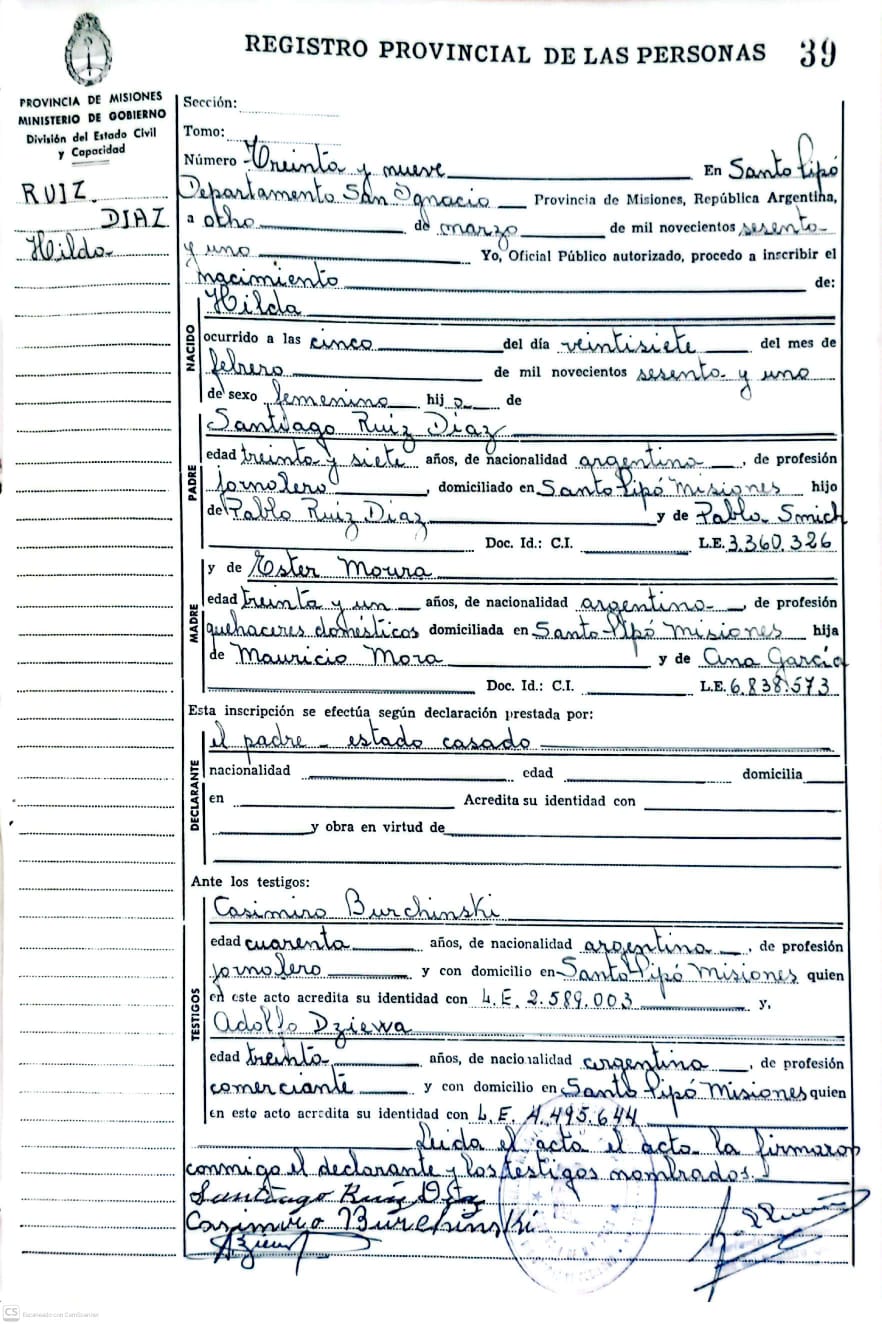 REGISTRO PROVINCIAL DE LAS PERSONAS 39
PROVINCIA DE MISIONES
MINISTERIO DE GOBIERNO
División del Estado Civil
y Capacidad
RUIZ
DIAZ
Hilda
Sección:
Tomo:
Número Treinta y nueve En Santo Pipó
Departamento San Ignacio Provincia de Misiones, República Argentina,
a otho de marzo de mil novecientos sesenta
y uno Yo, Oficial Público autorizado, procedo a inscribir el
nacimiento de:
NACIDO
Hilda
ocurrido a las cinco del día veintisiete del mes de
febrero de mil novecientos sesenta y uno
de sexo femenino hij a de
PADRE
Santiago Ruiz Diaz
edad treinta y siete años, de nacionalidad argentina, de profesión
jornalero, domiciliado en Santo Pipó Misiones hijo
de Pablo Ruiz Diaz y de Pabla Smich
Doc. Id.: C.I. L.E. 3.360.326
MADRE
y de Ester Moura
edad treinta y un años, de nacionalidad argentina, de profesión
quehaceres domésticos domiciliada en Santo Pipó Misiones hija
de Mauricio Mora y de Ana García
Doc. Id.: C.I. L.E. 6.838.573
Esta inscripción se efectúa según declaración prestada por:
DECLARANTE
el padre - estado casado
nacionalidad edad domicilia
en Acredita su identidad con
y obra en virtud de
Ante los testigos:
TESTIGOS
Casimiro Burchinski
edad cuarenta años, de nacionalidad argentina, de profesión
jornalero y con domicilio en Santo Pipó Misiones quien
en este acto acredita su identidad con L.E. 2.589.003 y,
Adolfo Dziewa
edad treinta años, de nacionalidad argentina, de profesión
comerciante y con domicilio en Santo Pipó Misiones quien
en este acto acredita su identidad con L.E. 4.495.644
Leida el acta el acta la firmaron
conmigo el declarante y los testigos nombrados.
Santiago Ruiz Diaz
Casimiro Burchinski
CS Escaneado con CamScanner